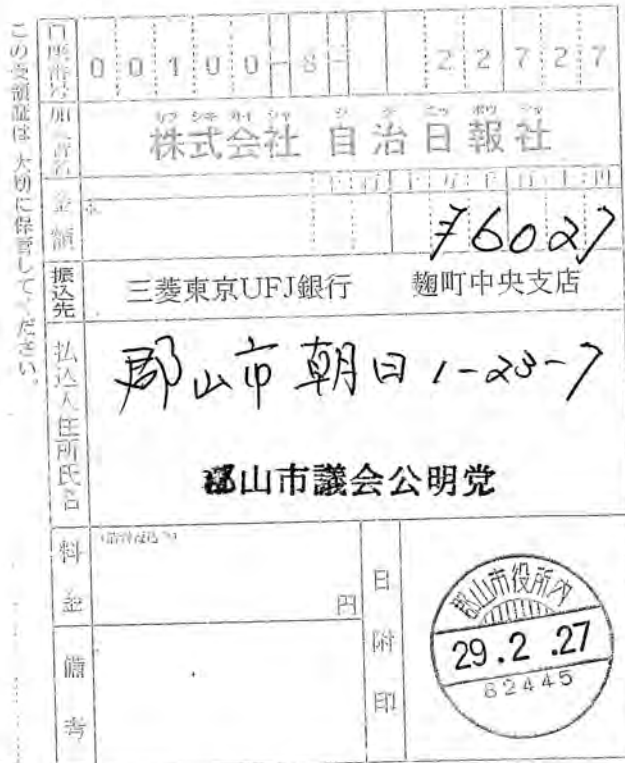 この受領証は、大切に保管してください。
口座番号 00100-8- 22727
加入者名 カブ シキ カイ シャ ジ チ ニッ ポウ シャ
株式会社 自治日報社
金額 千百十万千百十円
¥6027
振込先 三菱東京UFJ銀行 麹町中央支店
払込人住所氏名 郡山市朝日1-23-7
郡山市議会公明党
料金 円
備考
日附印
郡山市役所内
29.2.27
82445